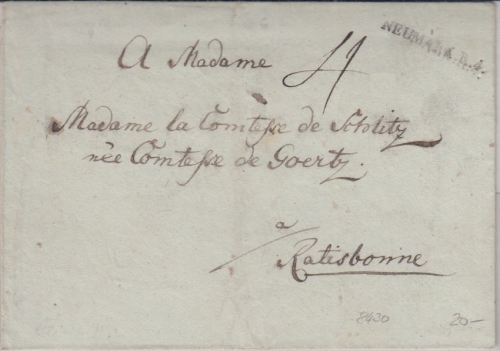 NEUMARK. R. 4.
A Madame 4
Madame la Comtesse de Schlitz
née Comtesse de Goertz.
a
Ratisbonne
8430 20-